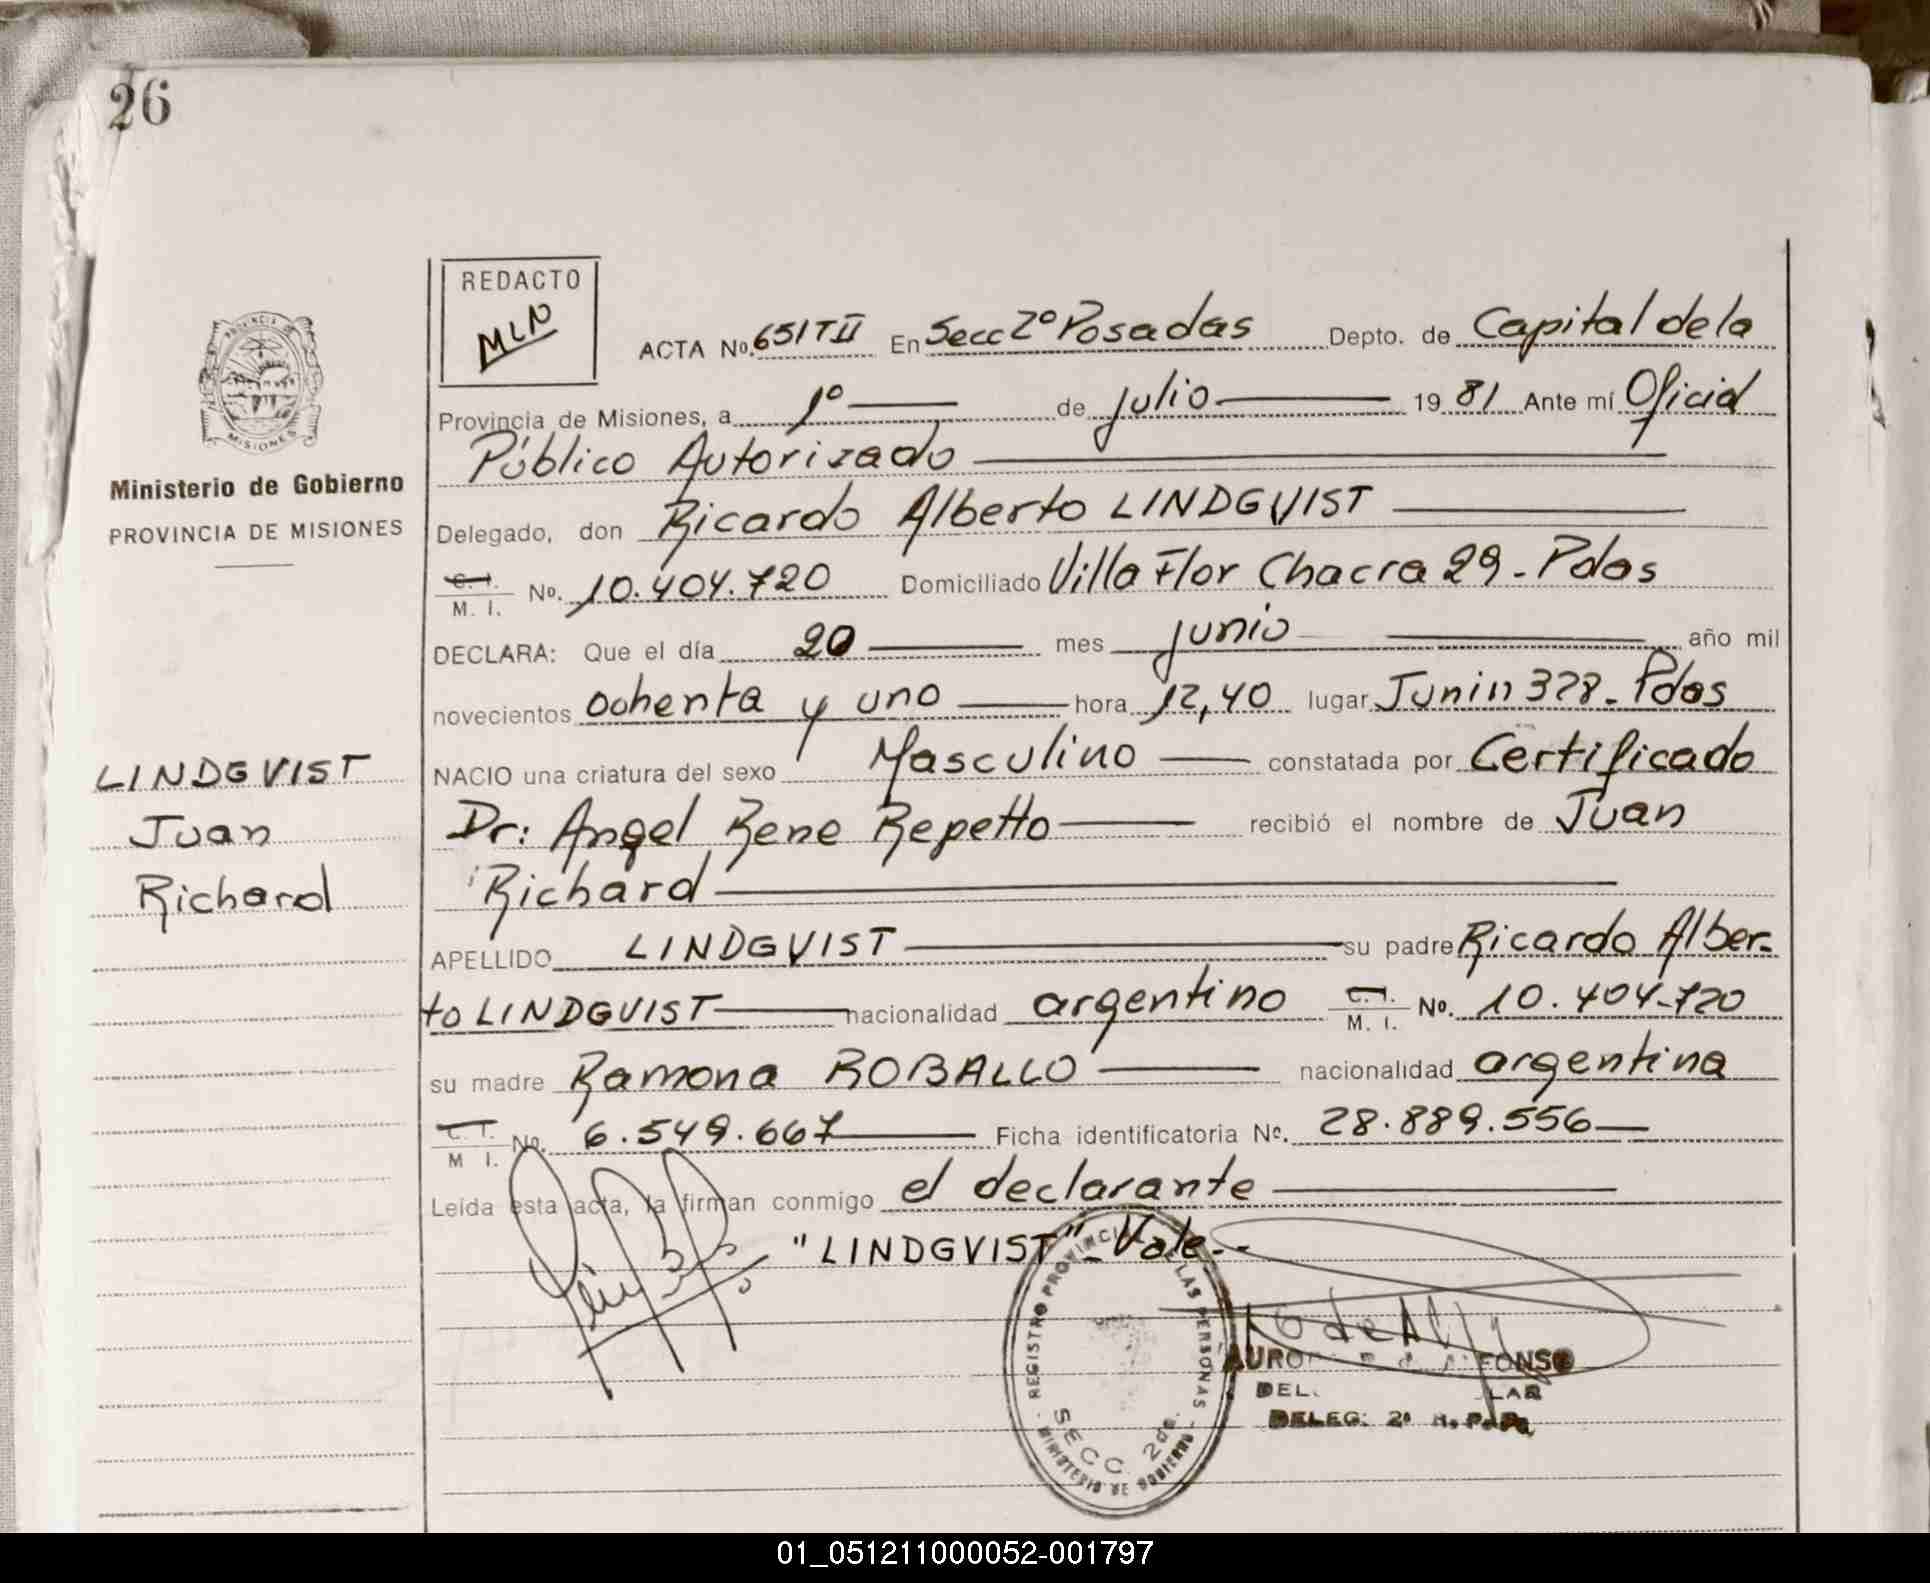 26
REDACTO
MLN
ACTA No. 651 T II En Secc 2º Posadas Depto. de Capital de la
Provincia de Misiones, a 1º de julio 1981 Ante mí Oficial
Público Autorizado
PROVINCIA DE
MISIONES
Ministerio de Gobierno
PROVINCIA DE MISIONES
Delegado, don Ricardo Alberto LINDGVIST
C. I.
M. I. No. 10.404.720 Domiciliado Villa Flor Chacra 29 - Pdas
DECLARA: Que el día 20 mes junio año mil
novecientos ochenta y uno hora 12,40 lugar Junin 328 - Pdas
NACIO una criatura del sexo Masculino constatada por Certificado
Dr: Angel Rene Repetto recibió el nombre de Juan
Richard
LINDGVIST
Juan
Richard
APELLIDO LINDGVIST su padre Ricardo Alber-
to LINDGVIST nacionalidad argentino C. I.
M. I. No. 10.404.720
su madre Ramona ROBALLO nacionalidad argentina
C. I.
M I. No. 6.549.667 Ficha identificatoria No. 28.889.556
Leída esta acta, la firman conmigo el declarante
"LINDGVIST" - Vale -
REGISTRO PROVINCI LAS PERSONAS
SECC. 2da.
MINISTERIO DE GOBIERNO
DELEG: 2ª R. P. Ps
01_051211000052-001797